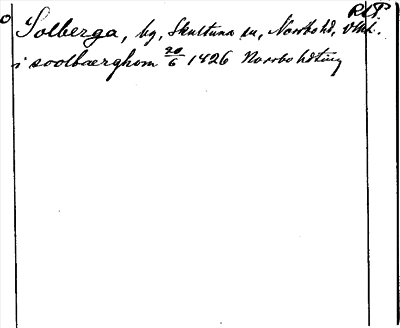 RAP.
Solberga, by, Skultuna sn, Norrbo hd, Vtml.
i soolbaerghom 20/6 1426 Norrbohdting